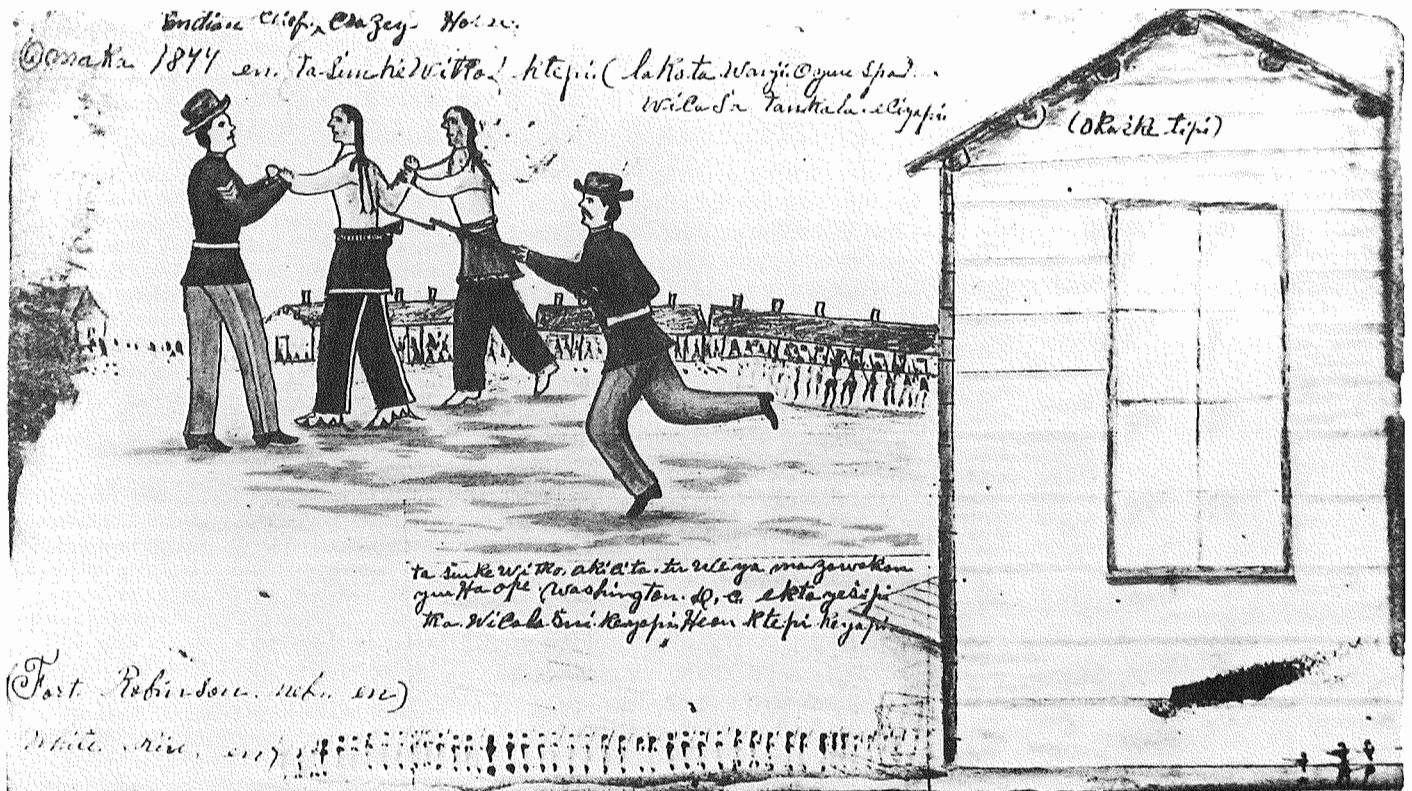 Indian Chief, Crazey Horse.
Omaka 1877 en. Tasunke Witko. ktepi. (lakota Wanji Oyuspa
Wicasa Tankala. eciyapi
(Okaśke tipi)
ta śunke Witko. akicita. mazawakan
yuha ope Washington. D, C. ekta yeśipi
tka. Wicala śni. keyapi Heon ktepi keyapi
(Fort Robinson. neb. en)
White en)